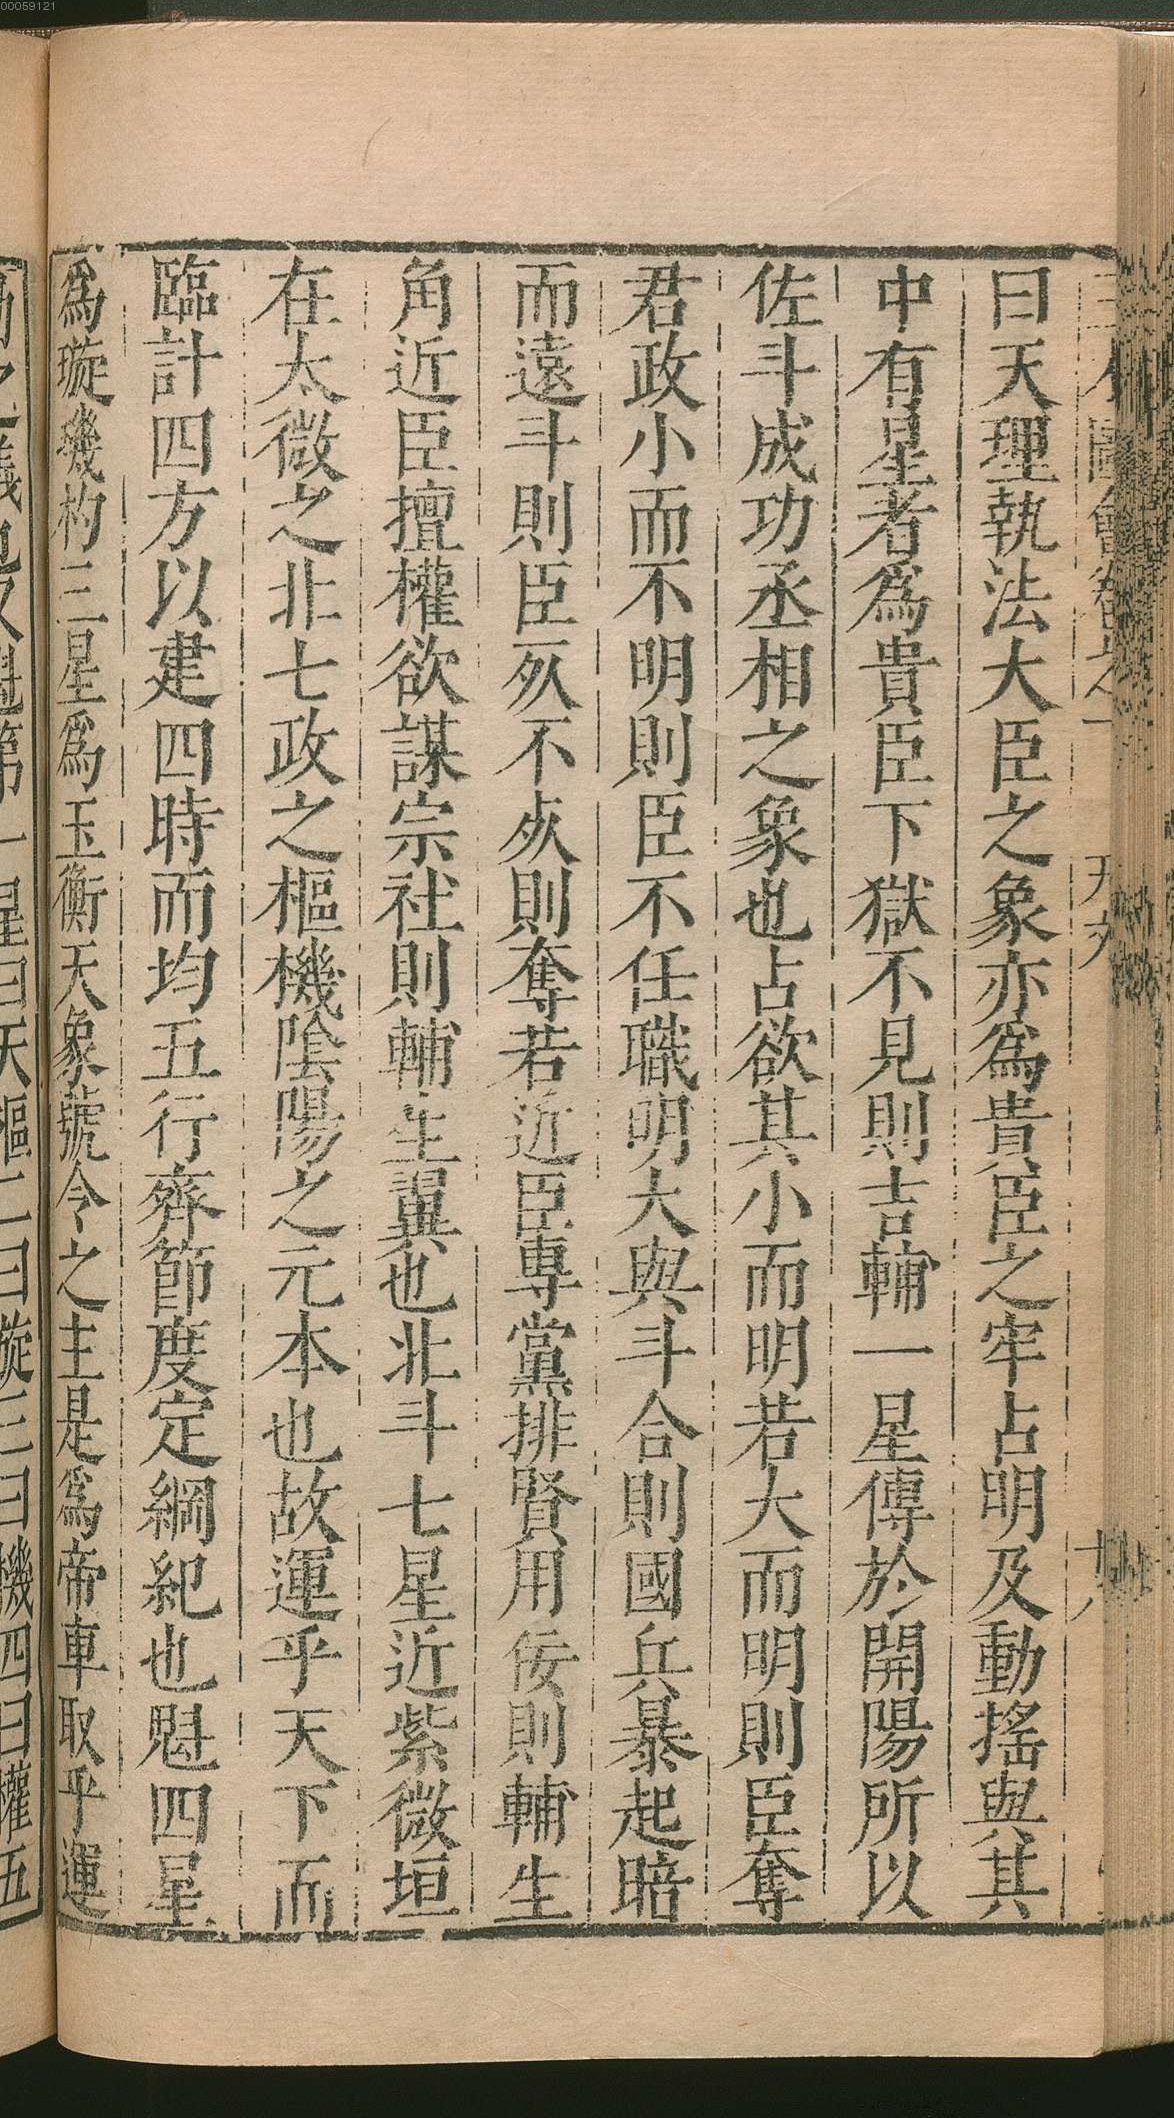 00059121
曰天理執法大臣之象亦爲貴臣之牢占明及動搖與其
中有星者爲貴臣下獄不見則吉輔一星傳於開陽所以
佐斗成功丞相之象也占欲其小而明若大而明則臣奪
君政小而不明則臣不任職明大與斗合則國兵暴起暗
而遠斗則臣死不死則奪若近臣專黨排賢用佞則輔生
角近臣擅權欲謀宗社則輔生翼也北斗七星近紫微垣
在太微之北七政之樞機陰陽之元本也故運乎天下而
臨計四方以建四時而均五行齊節度定綱紀也魁四星
爲璇璣杓三星爲玉衡天象號令之主是爲帝車取乎運
之義也又魁第一星曰天樞二曰璇三曰機四曰權五